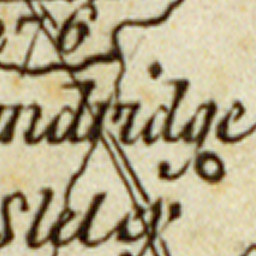 e76
ndridge
sley